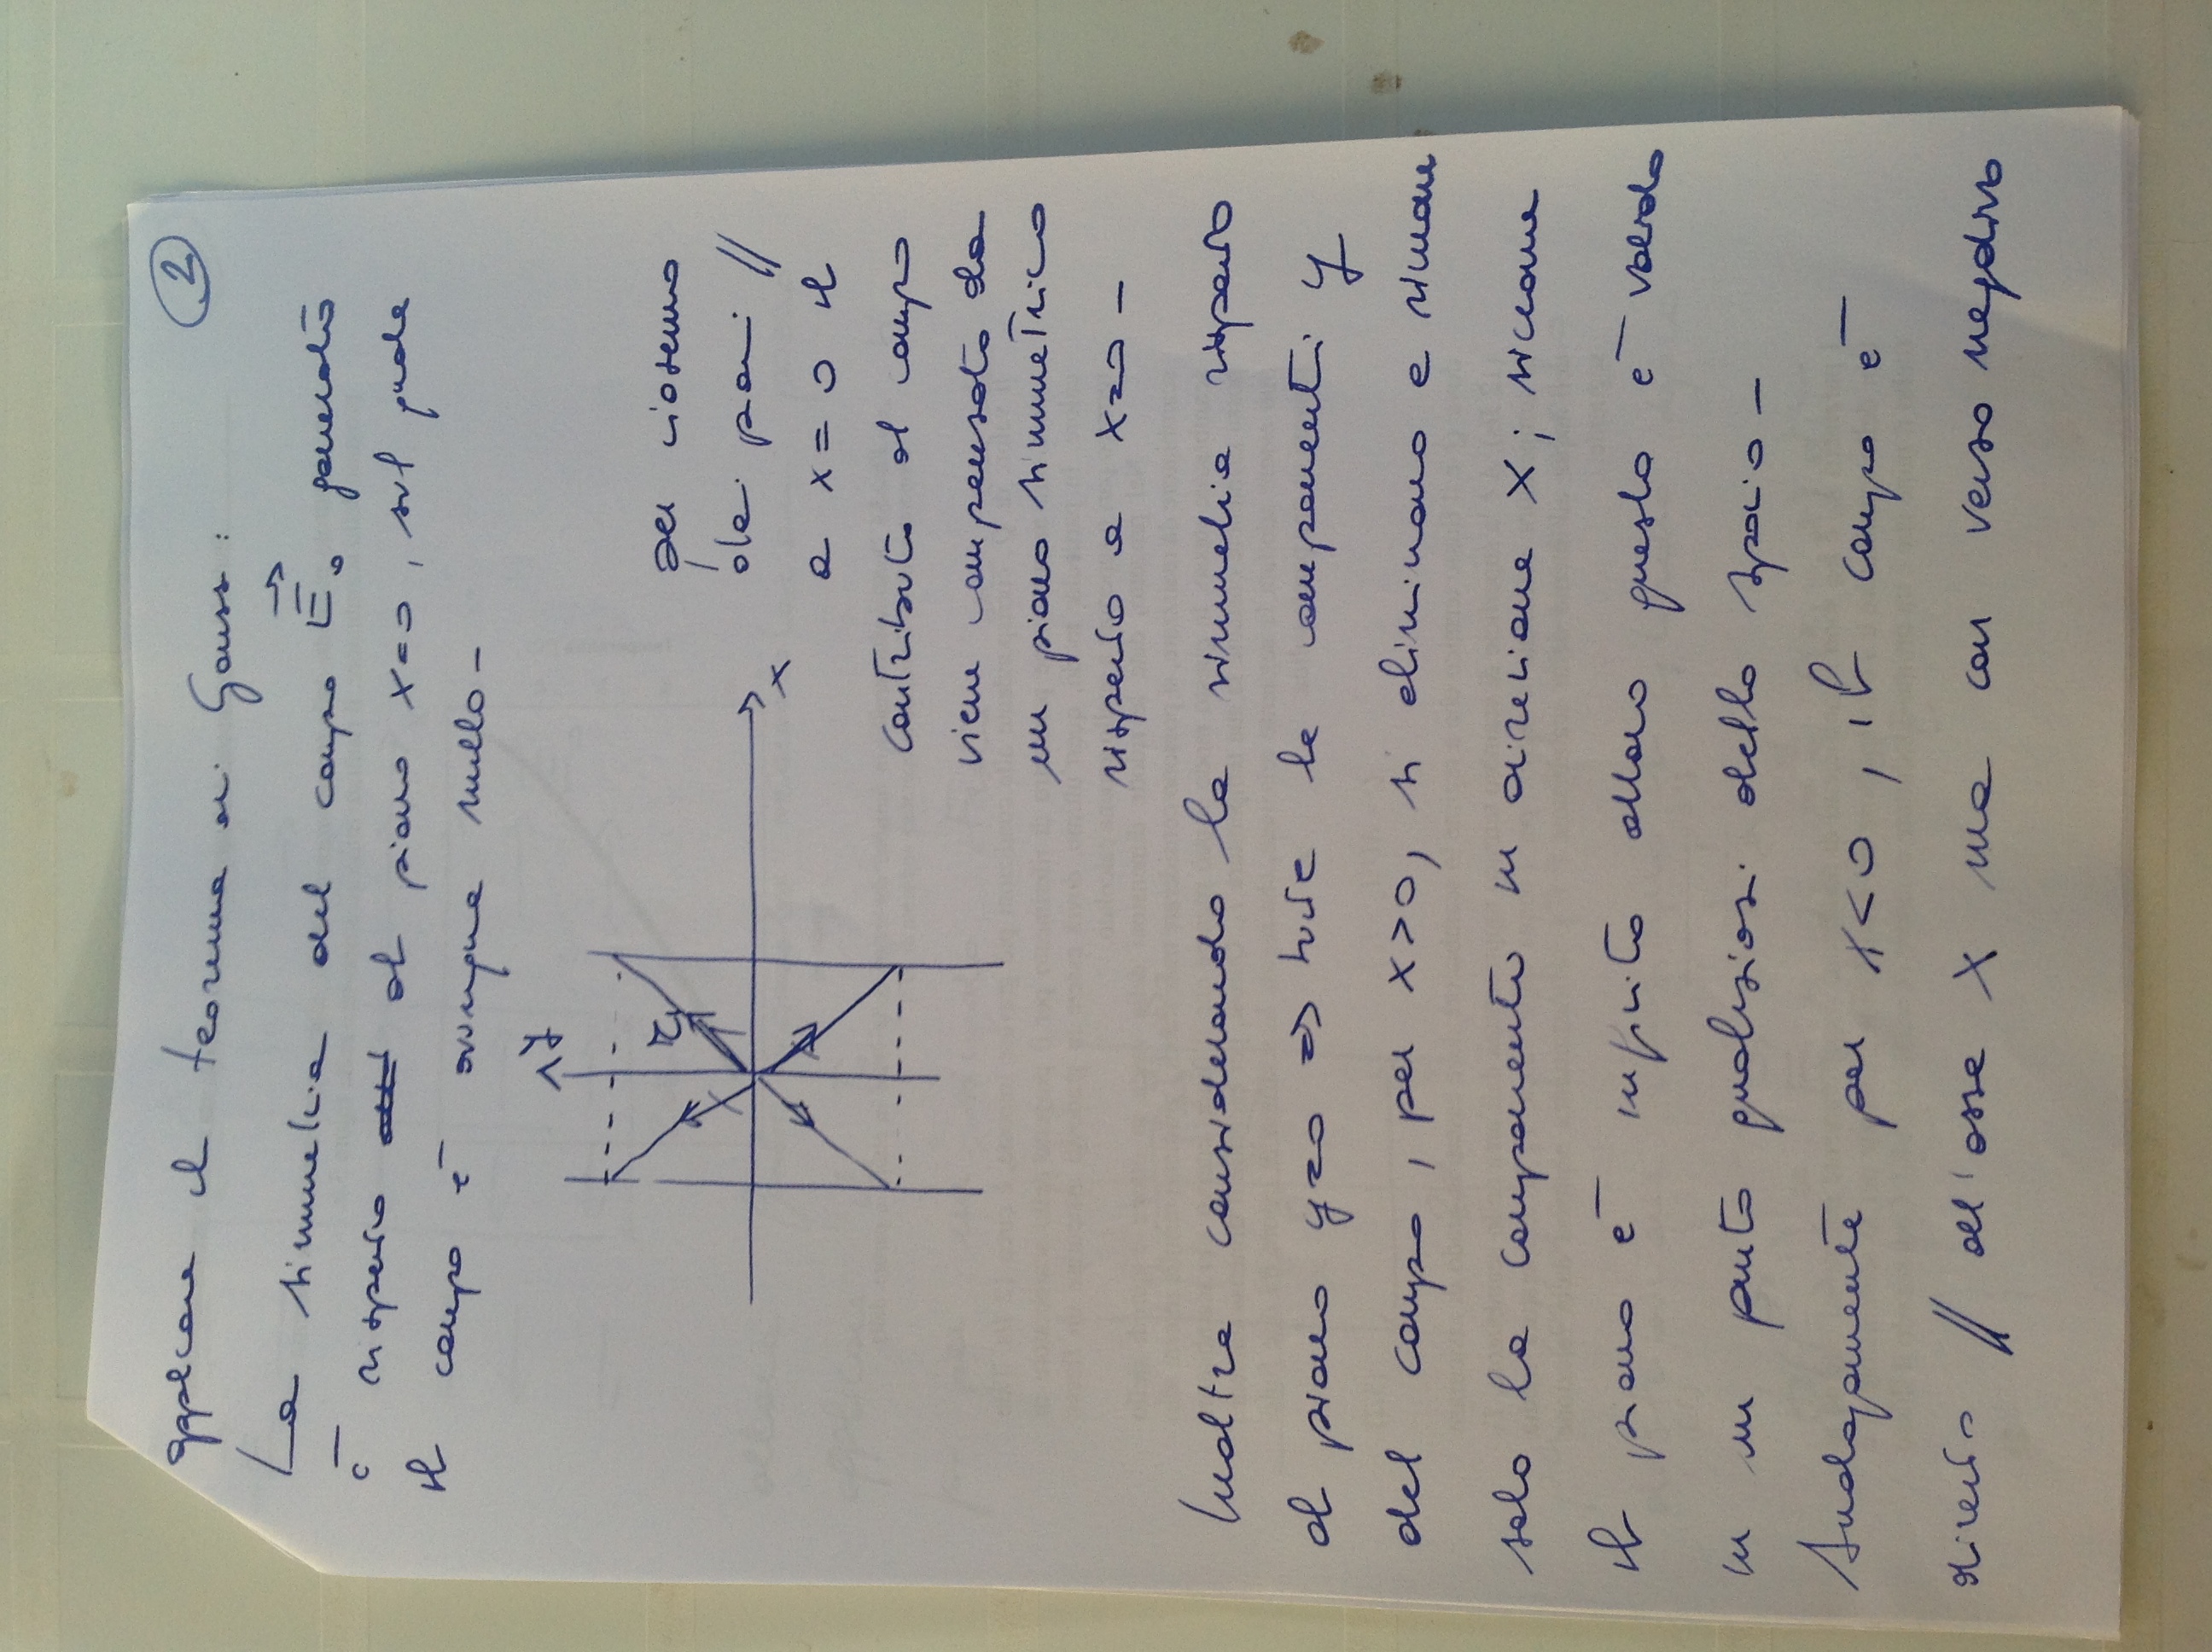 applicare il teorema di Gauss :
2
La simmetria del campo E₀ generato
è rispetto al piano x=0, sul quale
il campo è ovunque nullo -
y
r
x
per ciascuno
dei piani //
a x = 0 il
contributo al campo
viene compensato da
un piano simmetrico
rispetto a x=0 -
Inoltre considerando la simmetria rispetto
al piano y=0 => tutte le componenti y
del campo, per x>0, si eliminano e rimane
solo la componente in direzione x; siccome
il piano è infinito allora questo è valido
in un punto qualsiasi dello spazio -
Analogamente per x<0, il campo è
diretto // all'asse x ma con verso negativo